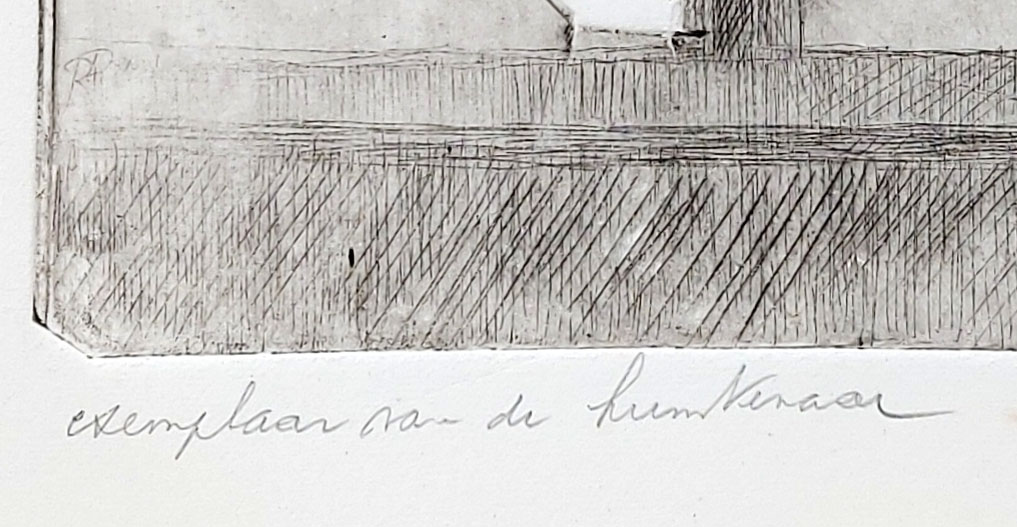 RH
exemplaar van de kunstenaar